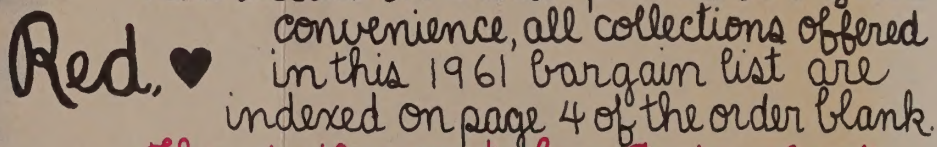 Red, ♥
convenience, all collections offered
in this 1961 bargain list are
indexed on page 4 of the order blank.